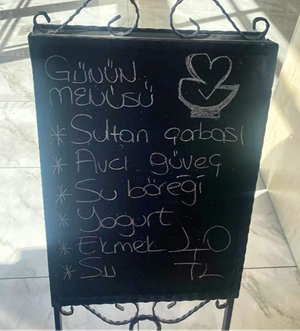 GÜNÜN
MENÜSÜ
* Sultan çorbası
* Avcı güveç
* Su böreği
* Yogurt
* Ekmek
* Su
TL